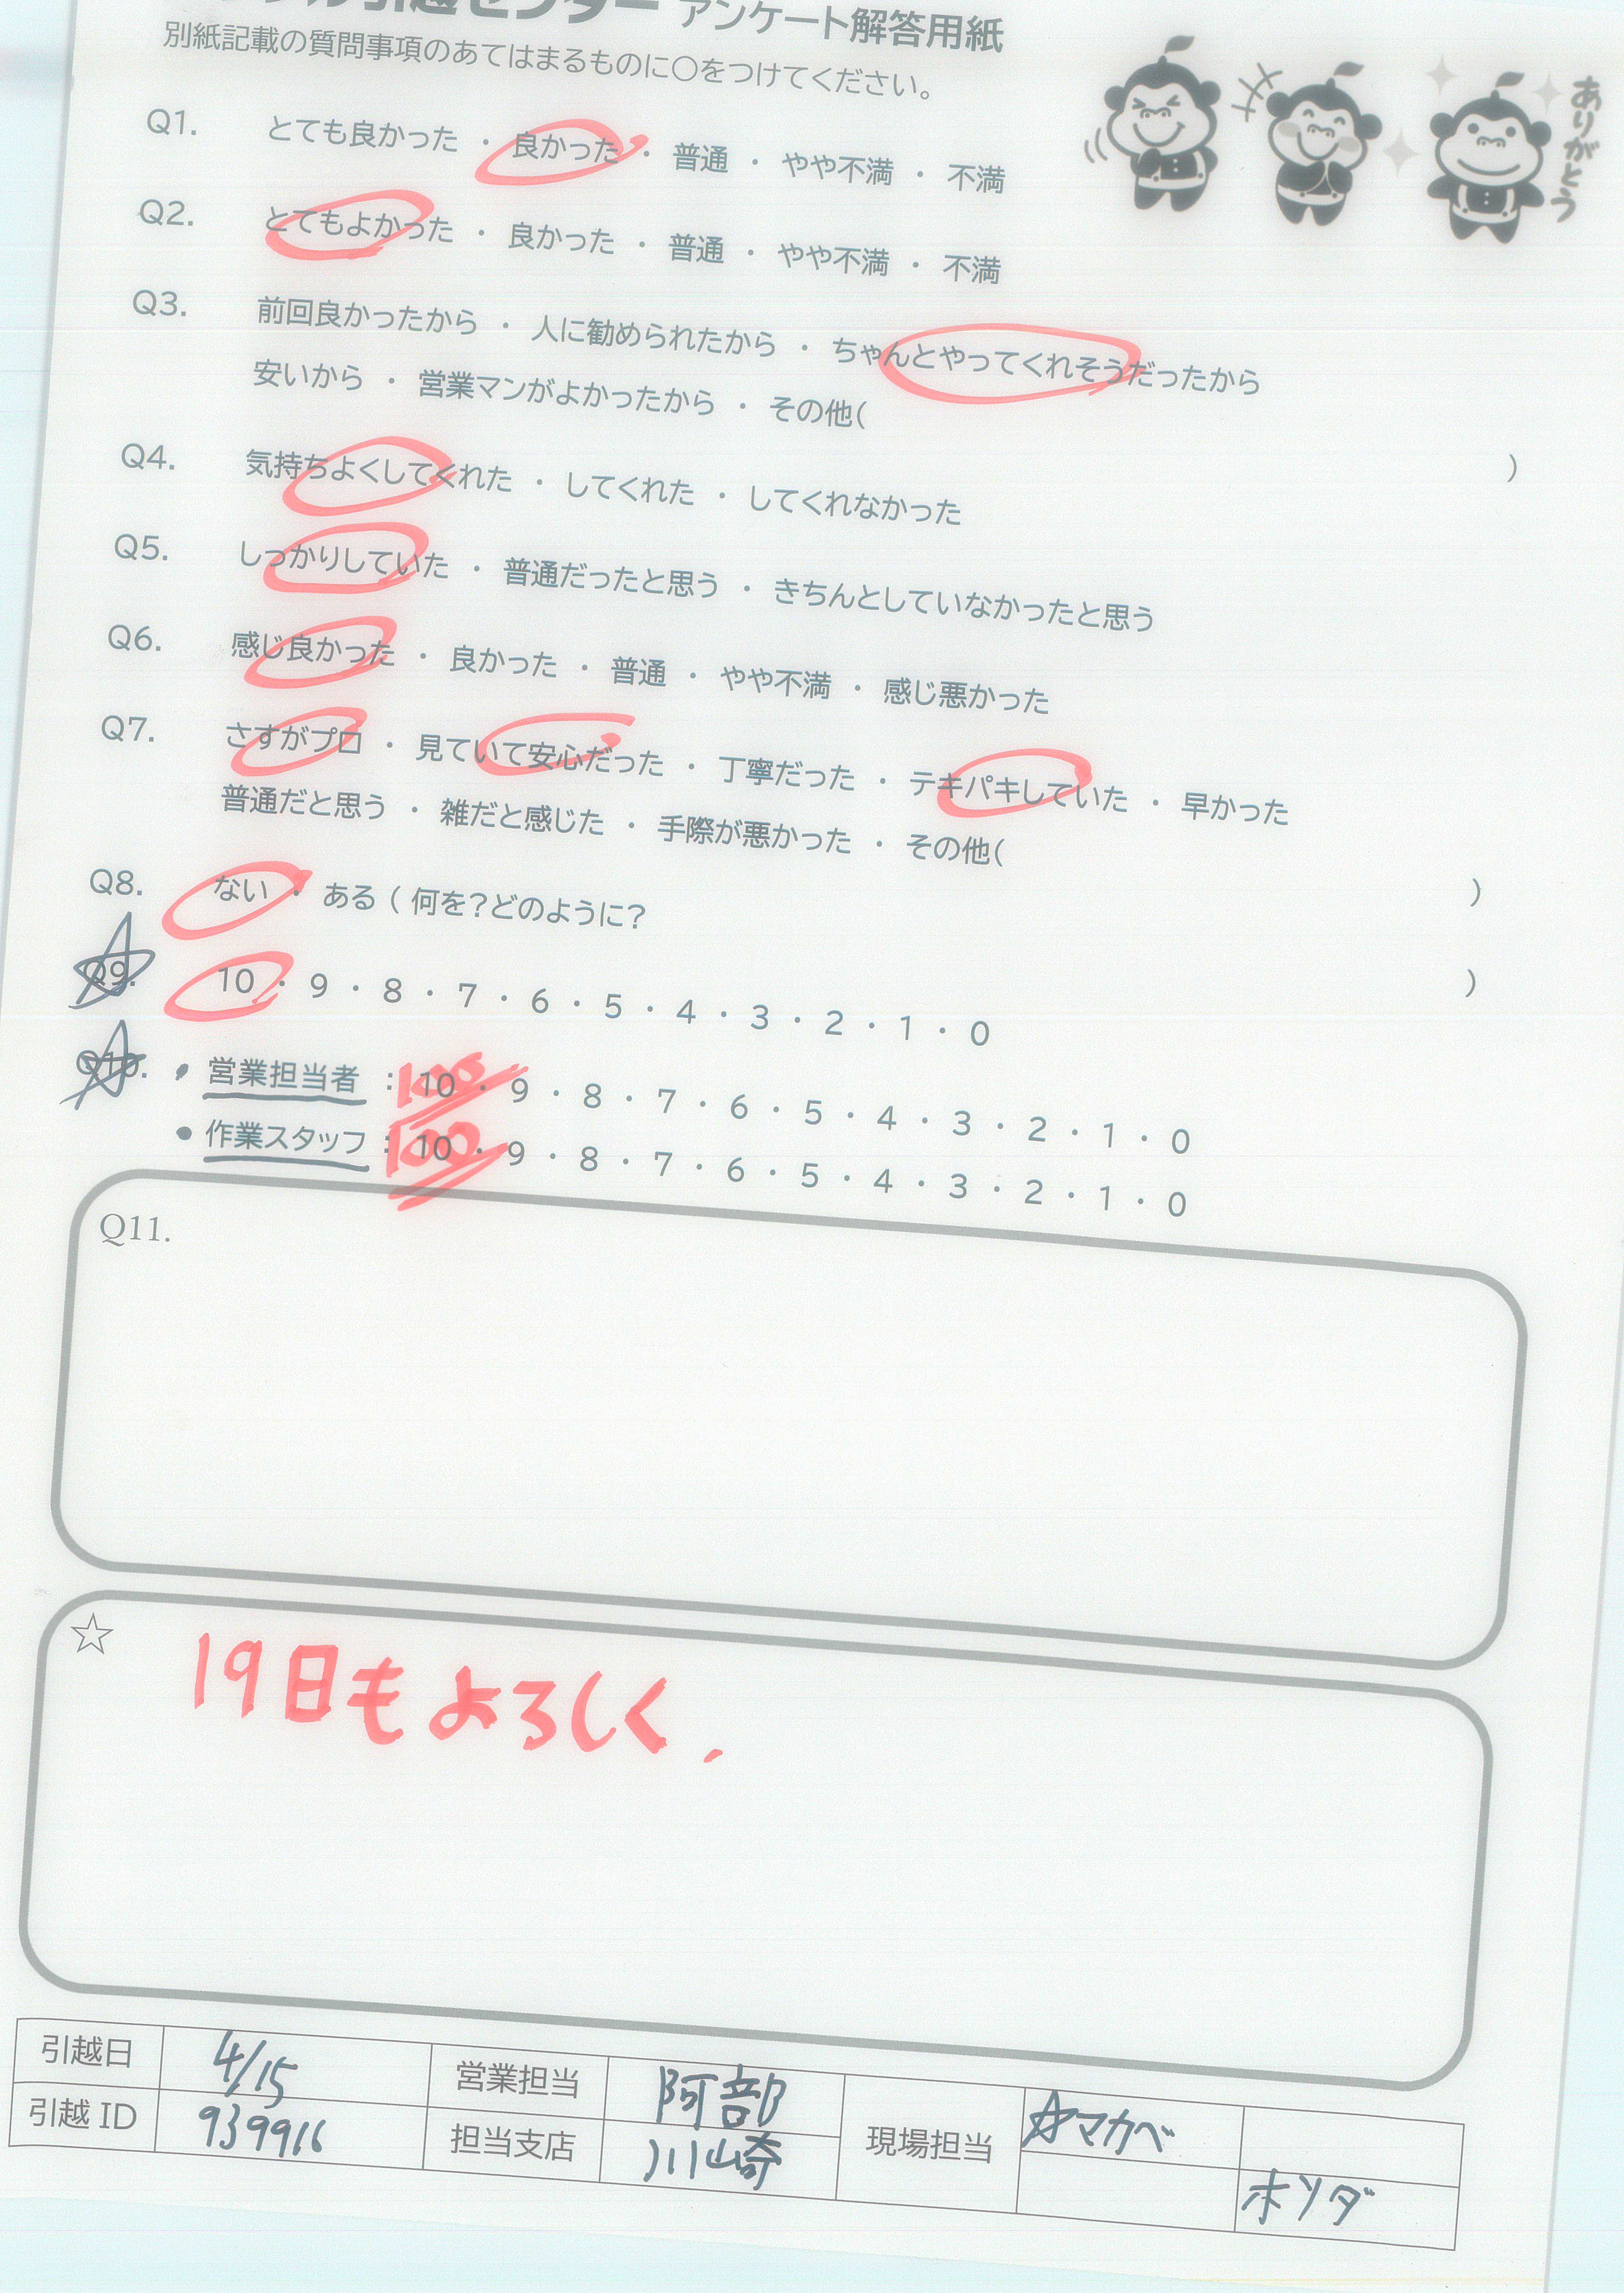 引越センター アンケート解答用紙
別紙記載の質問事項のあてはまるものに○をつけてください。
ありがとう
Q1. とても良かった ・ 良かった ・ 普通 ・ やや不満 ・ 不満
Q2. とてもよかった ・ 良かった ・ 普通 ・ やや不満 ・ 不満
Q3. 前回良かったから ・ 人に勧められたから ・ ちゃんとやってくれそうだったから
安いから ・ 営業マンがよかったから ・ その他( )
Q4. 気持ちよくしてくれた ・ してくれた ・ してくれなかった
Q5. しっかりしていた ・ 普通だったと思う ・ きちんとしていなかったと思う
Q6. 感じ良かった ・ 良かった ・ 普通 ・ やや不満 ・ 感じ悪かった
Q7. さすがプロ ・ 見ていて安心だった ・ 丁寧だった ・ テキパキしていた ・ 早かった
普通だと思う ・ 雑だと感じた ・ 手際が悪かった ・ その他( )
Q8. ない ・ ある ( 何を?どのように? )
Q9. 10 ・ 9 ・ 8 ・ 7 ・ 6 ・ 5 ・ 4 ・ 3 ・ 2 ・ 1 ・ 0
Q10. ● 営業担当者 : 100 10 ・ 9 ・ 8 ・ 7 ・ 6 ・ 5 ・ 4 ・ 3 ・ 2 ・ 1 ・ 0
● 作業スタッフ : 100 10 ・ 9 ・ 8 ・ 7 ・ 6 ・ 5 ・ 4 ・ 3 ・ 2 ・ 1 ・ 0
Q11.
☆ 19日もよろしく.
引越日 4/15 営業担当 阿部 現場担当 ☆マカベ
引越 ID 939916 担当支店 川崎 ホソダ